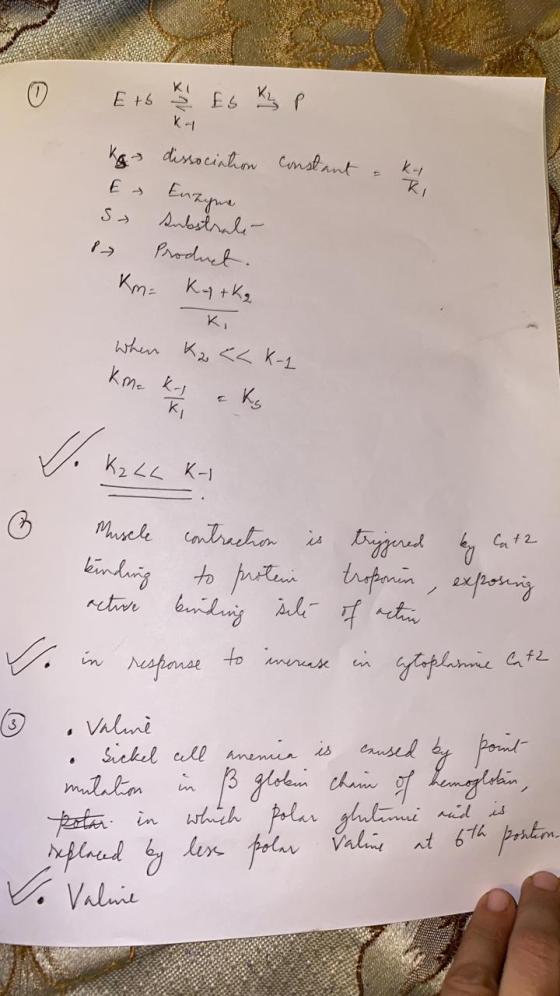 ①
E + S ⇌ ES → P
K1 K2
K-1
Ks → dissociation constant = K-1/K1
E → Enzyme
S → Substrate
P → Product.
Km = K-1 + K2 / K1
when K2 << K-1
Km = K-1/K1 = Ks
K2 << K-1.
② Muscle contraction is triggered by Ca+2
binding to protein troponin, exposing
active binding site of actin
. in response to increase in cytoplasmic Ca+2
③ . Valine
. Sickel cell anemia is caused by point
mutation in β globin chain of hemoglobin,
polar. in which polar glutamic acid is
replaced by less polar Valine at 6th position.
. Valine